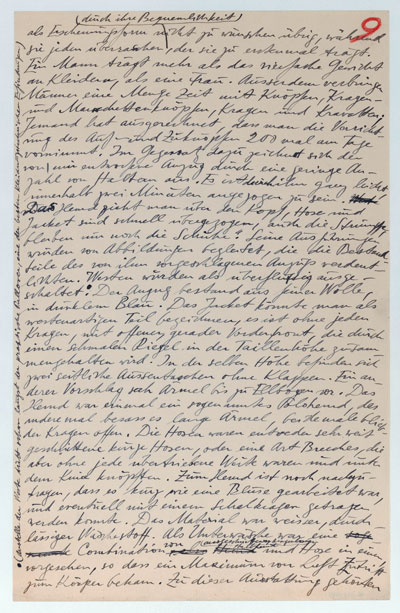 9
(durch ihre Bequemlichkeit)
als Erscheinungsform nicht zu wünschen übrig, während
sie jeden überraschen, der sie zu erstenmal trägt.
Ein Mann trägt mehr als das vierfache Gewicht
an Kleidern, als eine Frau. Ausserdem verbringen
Männer eine Menge Zeit mit Knöpfen, Kragen-
und Manschettenknöpfen, Kragen und Kravatten.
Jemand hat ausgerechnet, dass man die Verrich-
tung des Auf- und Zuknöpfens 200 mal am Tage
vornimmt. Im Gegensatz dazu zeichnet sich der
von mir entworfene Anzug durch eine geringe An-
zahl von aus. Es ist ganz leicht
innerhalb zwei Minuten angezogen zu sein.
Das Hemd zieht man über den Kopf, Hose und
Jacket sind schnell übergezogen, auch die Strümpfe,
bleiben nur noch die Schuhe. Seine Ausführungen
wurden von Abbildungen begleitet, die die Bestand-
teile des von ihm vorgeschlagenen Anzugs verdeut-
lichten. Westen wurden als überflüssig ausge-
schaltet. Der Anzug bestand aus feiner Wolle
in dunklem Blau. Das Jacket könnte man als
westenartigen Teil bezeichnen, es ist ohne jeden
Kragen mit offener gerader Vorderfront, die durch
einen schmalen Riegel in der Taillenhöhe zusam-
mengehalten wird. In der selben Höhe befinden sich
zwei seitliche Aussentaschen ohne Klappen. Ein an-
derer Vorschlag sah Ärmel bis zu Ellbogen vor. Das
Hemd war einmal ein sogenanntes Polohemd, das
andere mal besass es lange Ärmel, beide male blieb
der Kragen offen. Die Hosen waren entweder sehr weit
geschnittene kurze Hosen, oder eine Art Breeches, die
aber ohne jede übertriebene Weite waren und unter
dem Knie knöpften. Zum Hemd ist noch nachzu-
tragen, dass es kurz wie eine Bluse gearbeitet war
und eventuell mit einem Schalkragen getragen
werden konnte. Das Material war weisser, durch-
lässiger Waschestoff. Als Unterwäsche war eine
Combination von und Hose in einem
vorgesehen, so dass ein Maximum von Luft Zutritt
zum Körper bekam. Zu dieser Ausstattung gehörten